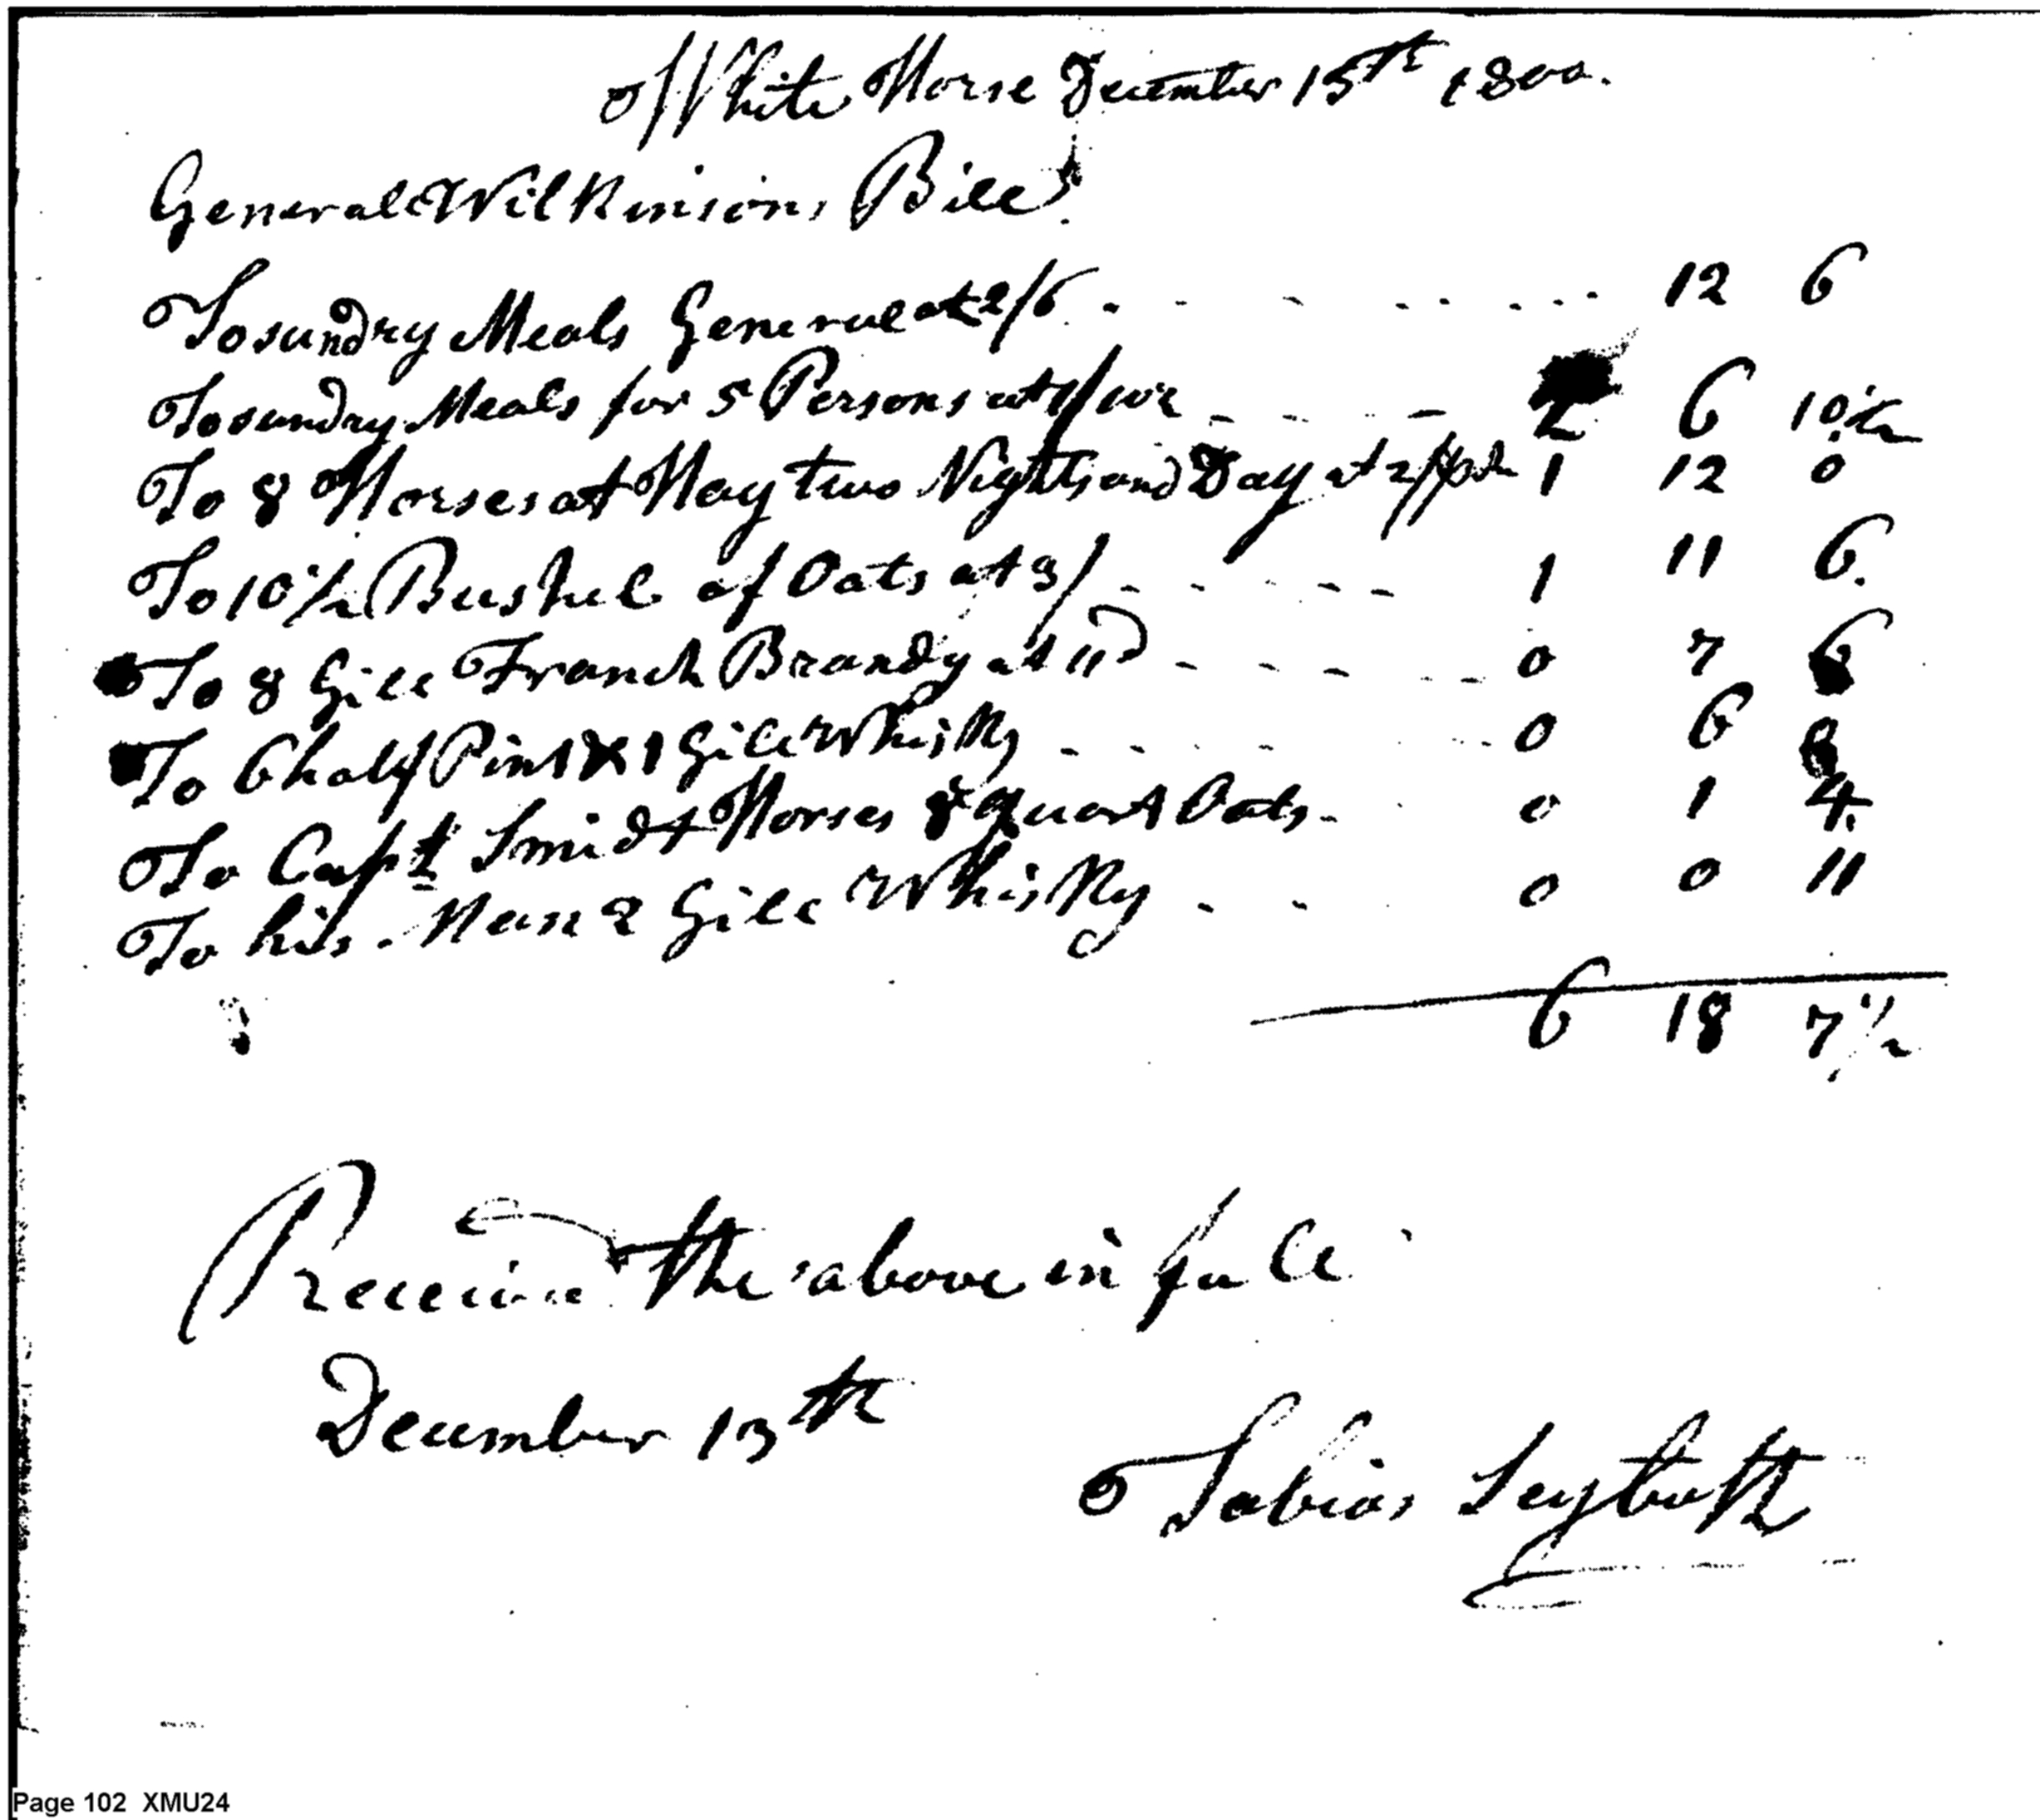 White Horse December 15th 1800.
General Wilkinsons Bill
To sundry Meals General at 2/6 12 6
To sundry Meals for 5 Persons at 2 6 10 1/2
To 8 Horses at Hay two Nights and Day at 2/ 1 12 0
To 10 1/2 Bushel of Oats at 3/ 1 11 6
To 8 Gill French Brandy at 11d 0 7 6
To 6 half Pint & 1 Gill Whisky 0 6
To Capt Smidt Horses 8 quart Oats 0 1 4
To his Man 2 Gill Whisky 0 0 11
6 18 7 1/2
Received the above in full
December 15th
Tobias Seybolt
Page 102 XMU24